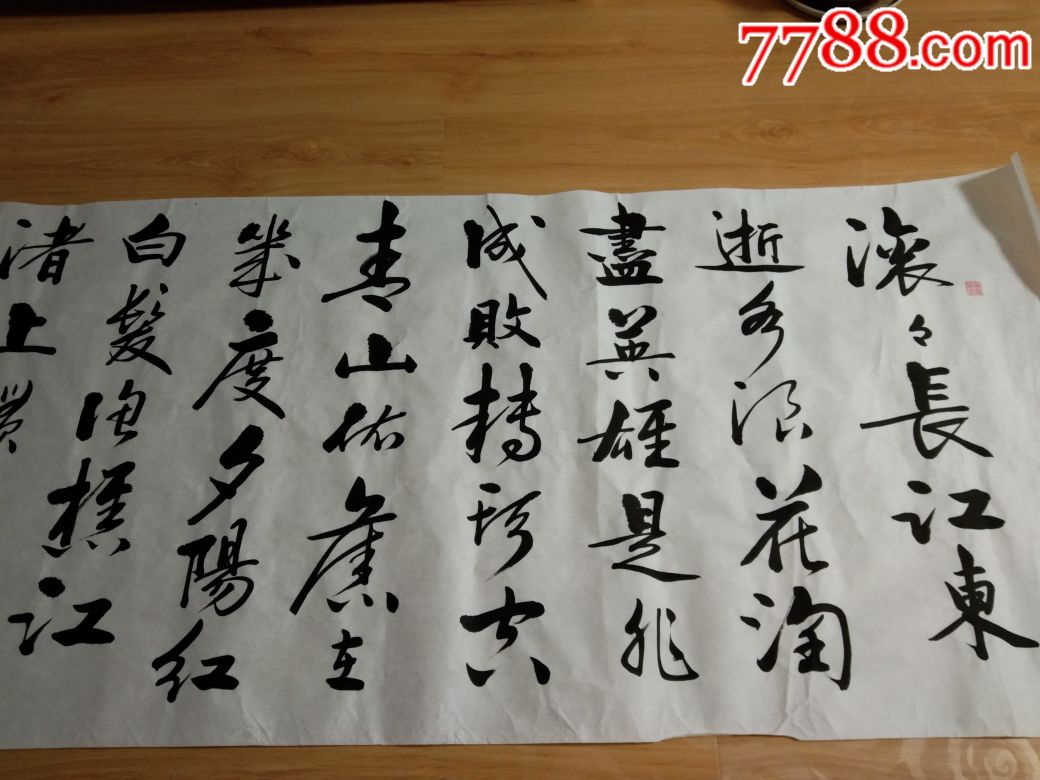 7788.com
滚々長江東
逝水浪花淘
盡英雄是非
成敗轉頭空
青山依舊在
幾度夕陽红
白髮漁樵江
渚上慣